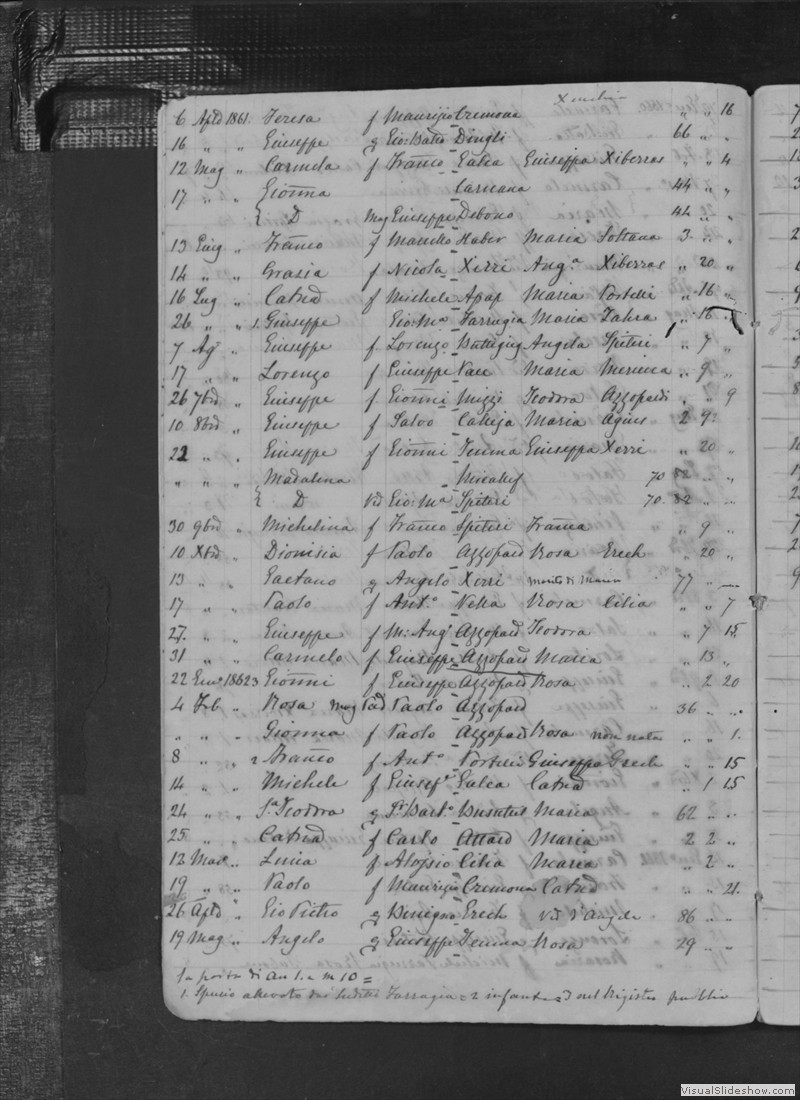 6 Aple 1861. Teresa f Maurizio Cremona " " 16
16 " " Giuseppe g Gio: Batta Dingli 66 " "
12 Mag " Carmela f Franco Galea Giuseppa Xiberras " " 4
17 " " Gionna Caruana 44 " "
D mog Giuseppe Debono 44 " "
13 Giug " Franco f Maria Soltana 3 " "
14 " " Grazia f Nicola Xerri Ang.a Xiberras " 20 "
16 Lug " Catnā f Michele Apap Maria Portelli " 16 "
26 " " 1. Giuseppe Gio: Ma Farrugia Maria Zahra " 16 "
7 Ag " Giuseppe f Lorenzo Buttigieg Angela Spiteri " 7 "
17 " " Lorenzo f Giuseppe Pace Maria " 9 "
26 7bre " Giuseppe f Gionni Mizzi Teodora Azzopardi " " 9
10 8bre " Giuseppe f Salvo Calleja Maria Agius 2 9
22 " " Giuseppe f Gionni Giuseppa Xerri " 20 "
" " " Madalena Micallef 70 82 " "
D Vd Gio: Ma Spiteri 70. 82 " "
30 9bre " Michelina f Franco Spiteri Franca " 9 "
10 Xbre " Dionisia f Paolo Azzopardi Rosa Grech " 20 "
13 " " Gaetano g Angelo Xerri marito di Maria 77 " "
17 " " Paolo f Ant.o Vella Rosa Cilia " " 7
27. " " Giuseppe f M: Ang.o Azzopardi Teodora " 7 15
31 " " Carmelo f Giuseppe Azzopardi Maria " 13 "
22 Enn.o 1862 3 Gionni f Giuseppe Azzopardi Rosa " 2 20
4 Feb " Rosa mog Paolo Azzopardi 36 " "
" " " Gionna f Paolo Azzopardi Rosa non nata " " 1.
8 " " 2 Franco f Ant.o Portelli Giuseppa Grech " " 15
14 " " Michele f Giusep.e Galea Catnā " 1 15
24 " " Teodora g Bart.o Busuttil Maria 62 " "
25 " " Catnā f Carlo Attard Maria 2 2 "
12 Mar " Lucia f Aloysio Cilia Maria " 2 "
19 " " Paolo f Maurizio Cremona Catnā " " 21.
26 Aple " Gio Pietro g Benigno Grech Vd d'Angela 86 " "
19 Mag " Angelo g Giuseppe Rosa 29 " "
di An 1. e m 10 =
1. Spurio allevato Farrugia = 2 infant = 3 nel Registro publico
VisualSlideshow.com